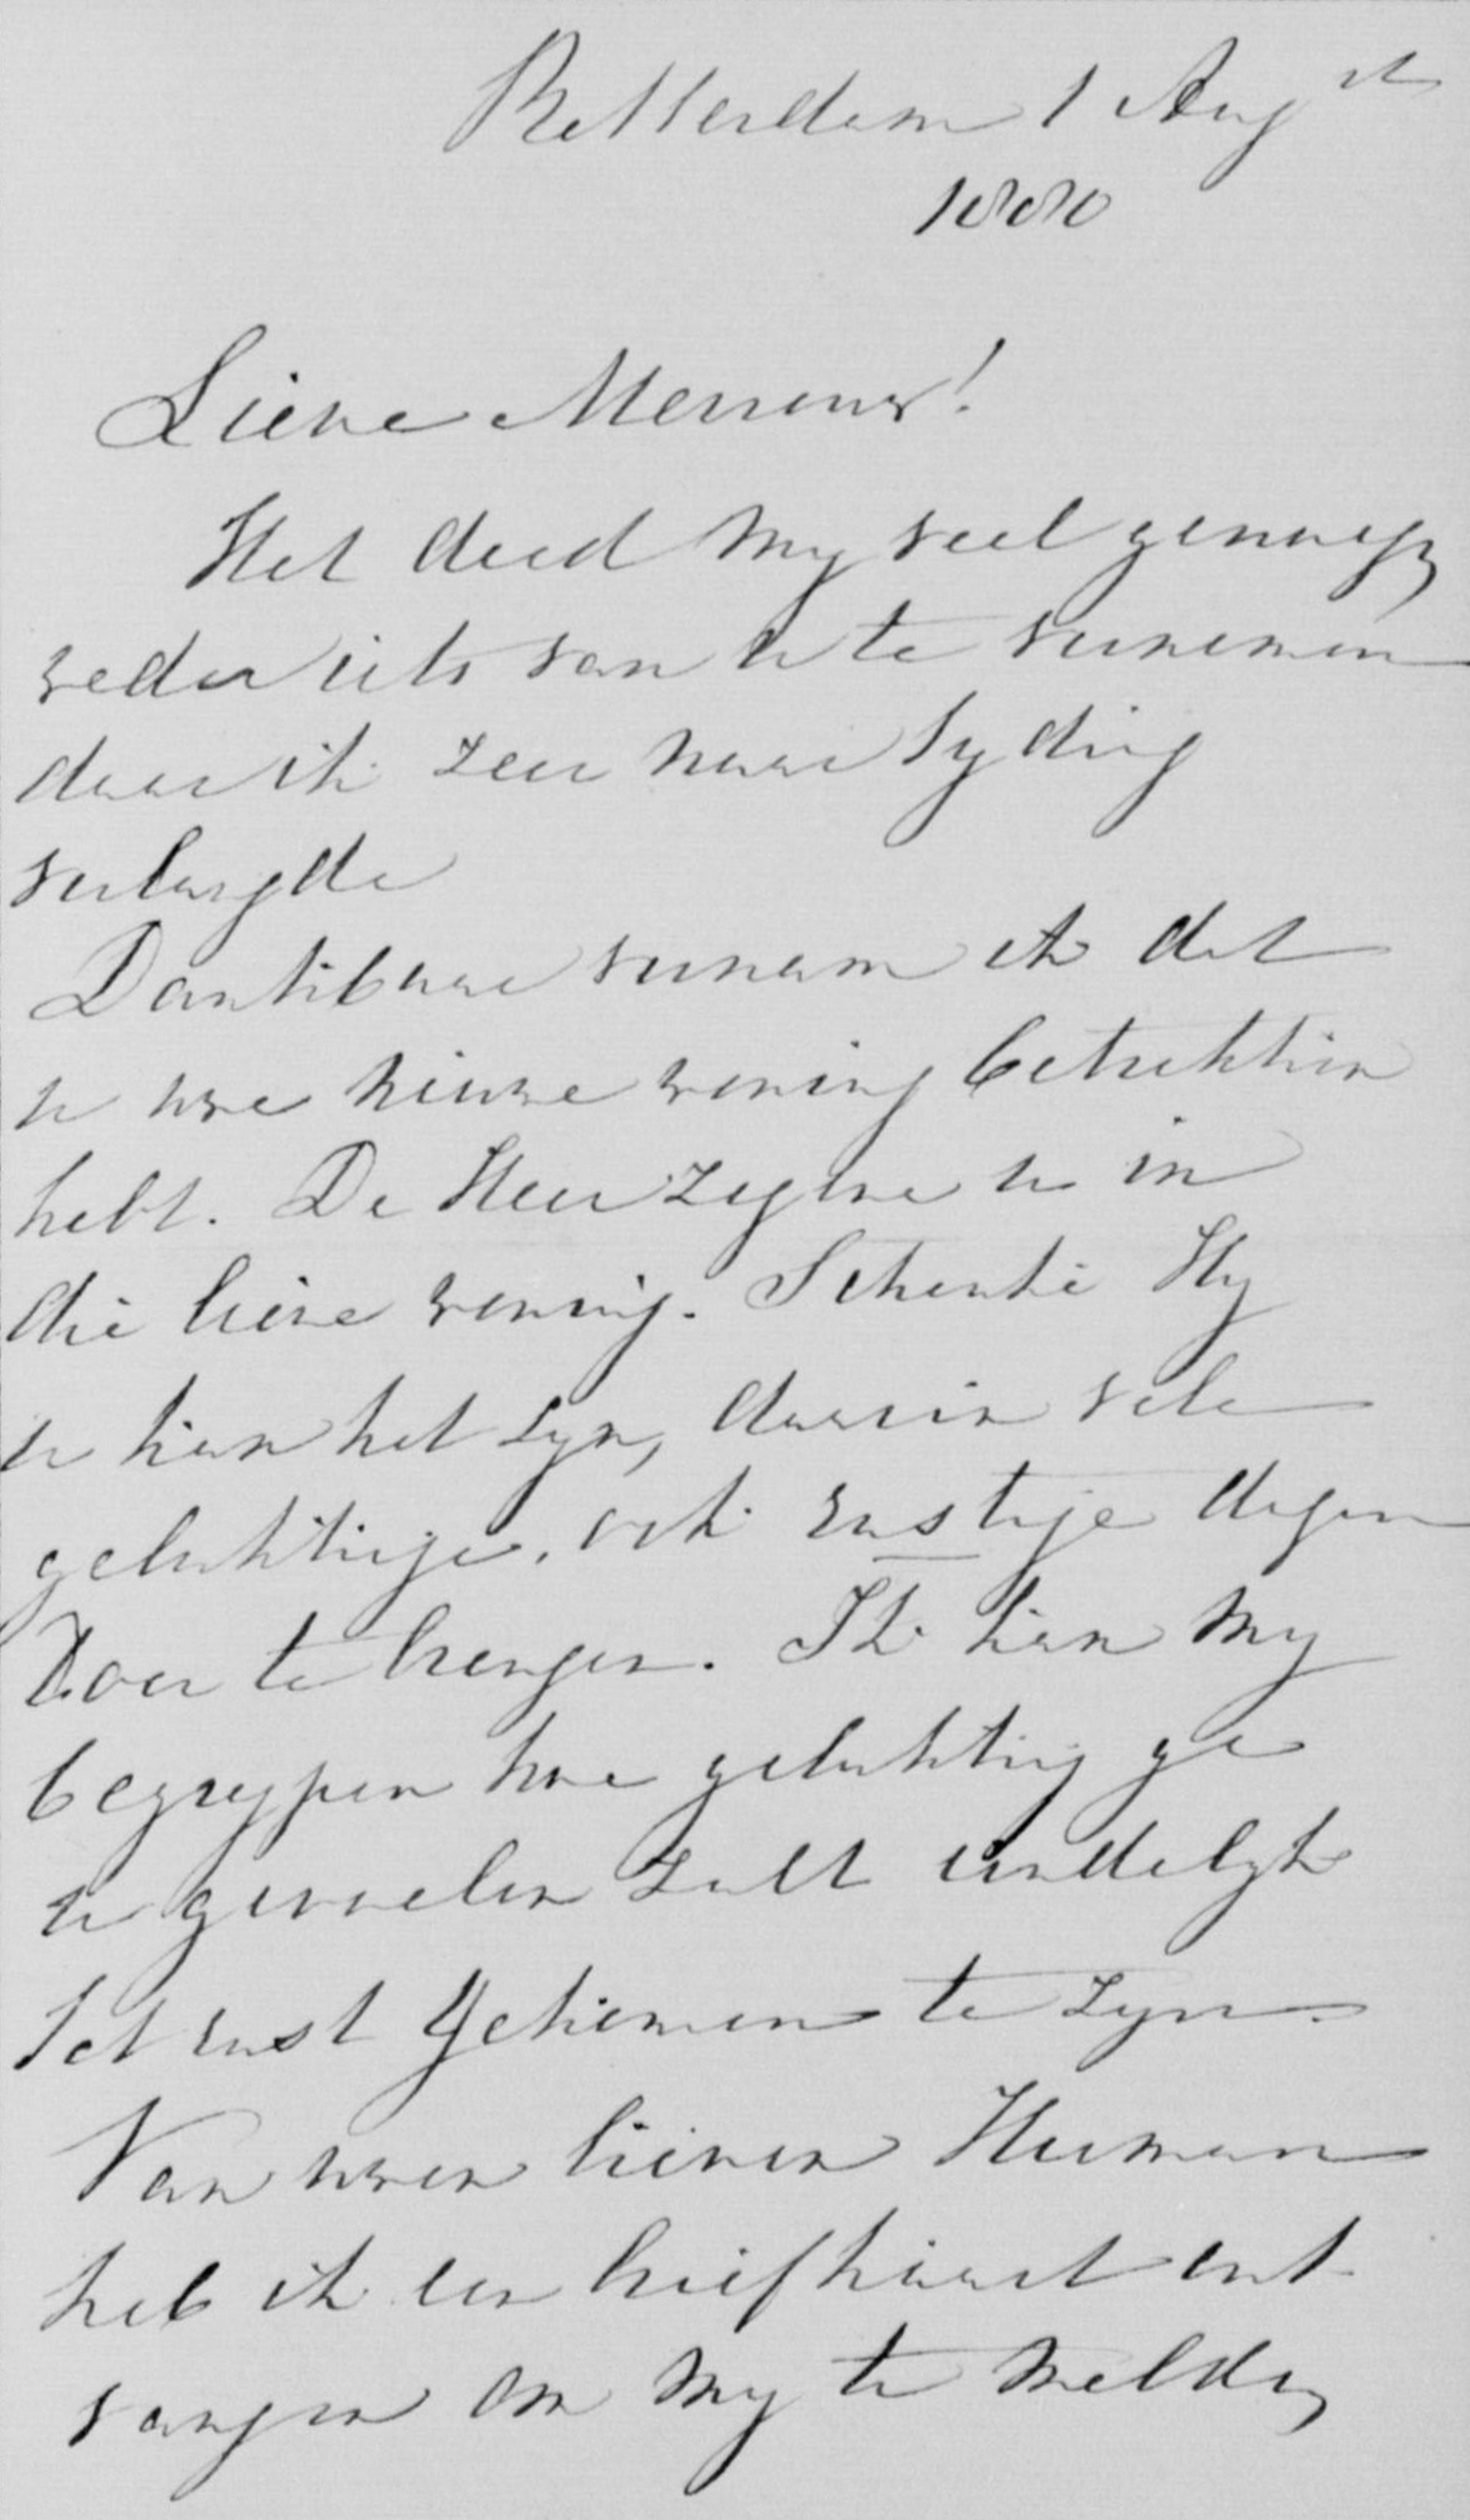 Rotterdam 1 Augst
1880
Lieve Mevrouw!
Het deed my veel genoegen
weder iets van u te vernemen
daar ik zeer naar tyding
verlangde
Dankbaar vernam ik dat
u uwe nieuwe woning betrokken
hebt. De Heer zegene u in
die lieve woning. Schenke Hy
u kan het zyn, daarin vele
gelukkige, ook rustige dagen
door te brengen. Ik kan my
begrypen hoe gelukkig ge
u gevoelen zult eindelyk
tot rust gekomen te zyn.
Van uwen lieven Herman
heb ik een briefkaart ont-
vangen om my te melden